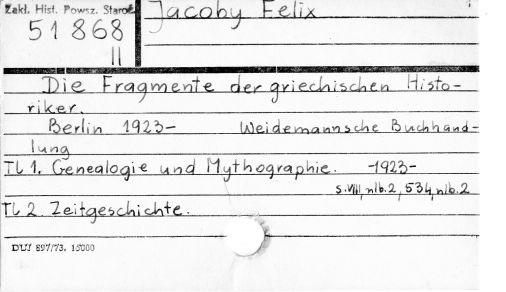 Zakł. Hist. Powsz. Staroż.
51868
II
Jacoby Felix
Die Fragmente der griechischen Histo-
riker.
Berlin 1923- Weidemannsche Buchhand-
lung
Tl 1. Genealogie und Mythographie. -1923-
s. VIII, nlb. 2, 534, nlb. 2
Tl 2. Zeitgeschichte.
DUJ 897/73. 15000